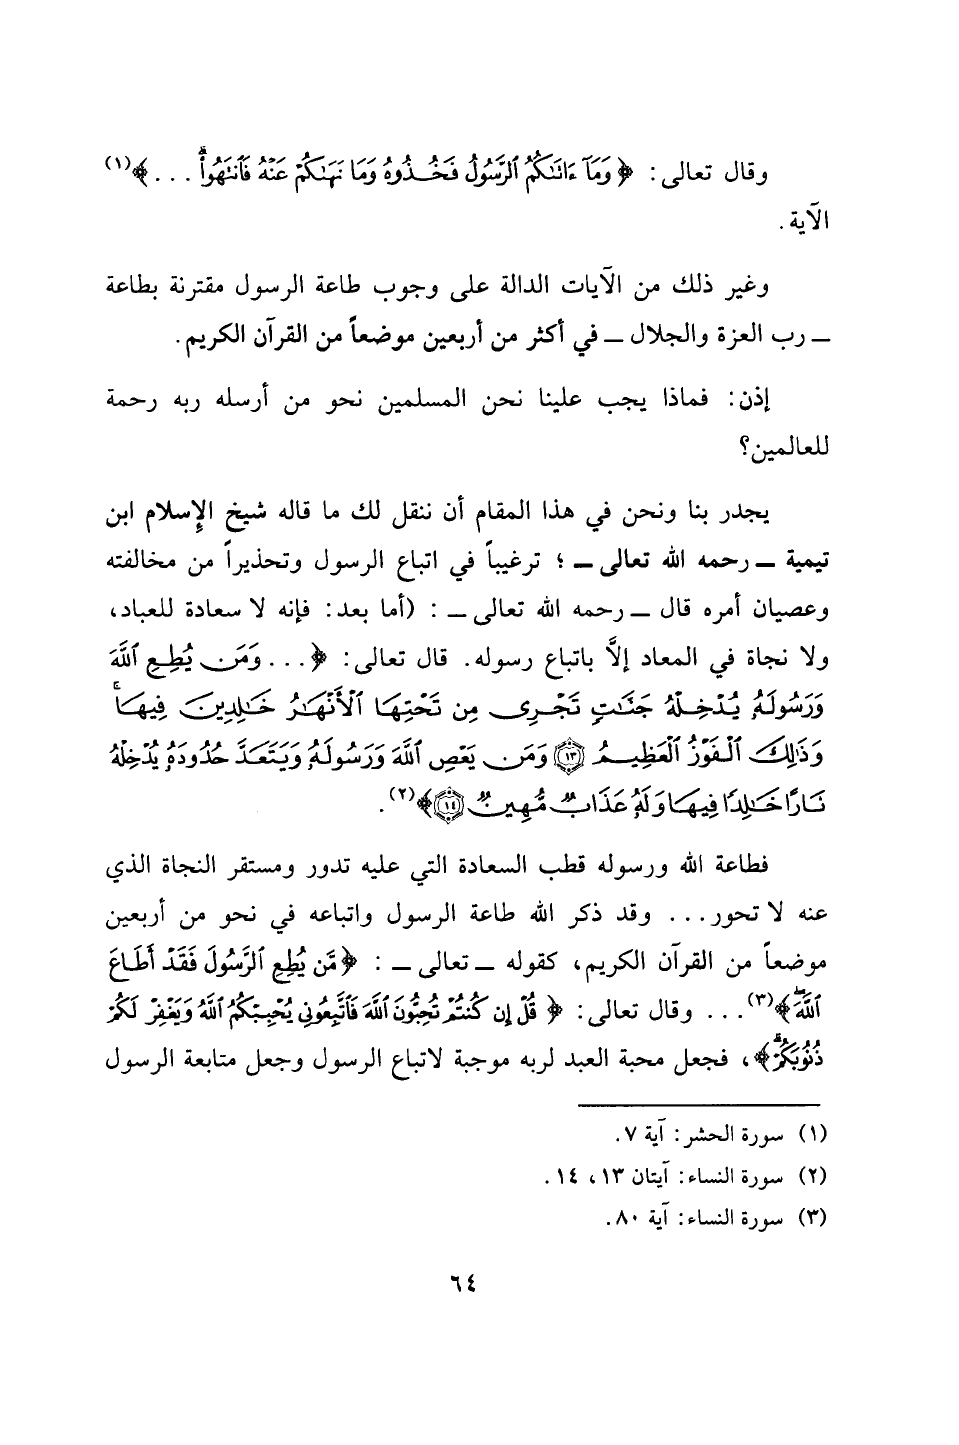 وقال تعالى: ﴿وَمَآ ءَاتَىٰكُمُ ٱلرَّسُولُ فَخُذُوهُ وَمَا نَهَىٰكُمْ عَنْهُ فَٱنتَهُوا۟ۚ ...﴾(١)
الآية.
وغير ذلك من الآيات الدالة على وجوب طاعة الرسول مقترنة بطاعة
ــ رب العزة والجلال ــ في أكثر من أربعين موضعاً من القرآن الكريم.
إذن: فماذا يجب علينا نحن المسلمين نحو من أرسله ربه رحمة
للعالمين؟
يجدر بنا ونحن في هذا المقام أن ننقل لك ما قاله شيخ الإسلام ابن
تيمية ــ رحمه الله تعالى ــ ؛ ترغيباً في اتباع الرسول وتحذيراً من مخالفته
وعصيان أمره قال ــ رحمه الله تعالى ــ : (أما بعد: فإنه لا سعادة للعباد،
ولا نجاة في المعاد إلاَّ باتباع رسوله. قال تعالى: ﴿... وَمَن يُطِعِ ٱللَّهَ
وَرَسُولَهُۥ يُدْخِلْهُ جَنَّٰتٍ تَجْرِى مِن تَحْتِهَا ٱلْأَنْهَٰرُ خَٰلِدِينَ فِيهَاۚ
وَذَٰلِكَ ٱلْفَوْزُ ٱلْعَظِيمُ ﴿١٣﴾ وَمَن يَعْصِ ٱللَّهَ وَرَسُولَهُۥ وَيَتَعَدَّ حُدُودَهُۥ يُدْخِلْهُ
نَارًا خَٰلِدًا فِيهَا وَلَهُۥ عَذَابٌ مُّهِينٌ ﴿١٤﴾﴾(٢).
فطاعة الله ورسوله قطب السعادة التي عليه تدور ومستقر النجاة الذي
عنه لا تحور... وقد ذكر الله طاعة الرسول واتباعه في نحو من أربعين
موضعاً من القرآن الكريم، كقوله ــ تعالى ــ : ﴿مَّن يُطِعِ ٱلرَّسُولَ فَقَدْ أَطَاعَ
ٱللَّهَۖ﴾(٣)... وقال تعالى: ﴿قُلْ إِن كُنتُمْ تُحِبُّونَ ٱللَّهَ فَٱتَّبِعُونِى يُحْبِبْكُمُ ٱللَّهُ وَيَغْفِرْ لَكُمْ
ذُنُوبَكُمْۗ﴾، فجعل محبة العبد لربه موجبة لاتباع الرسول وجعل متابعة الرسول
(١) سورة الحشر: آية ٧.
(٢) سورة النساء: آيتان ١٣، ١٤.
(٣) سورة النساء: آية ٨٠.
٦٤